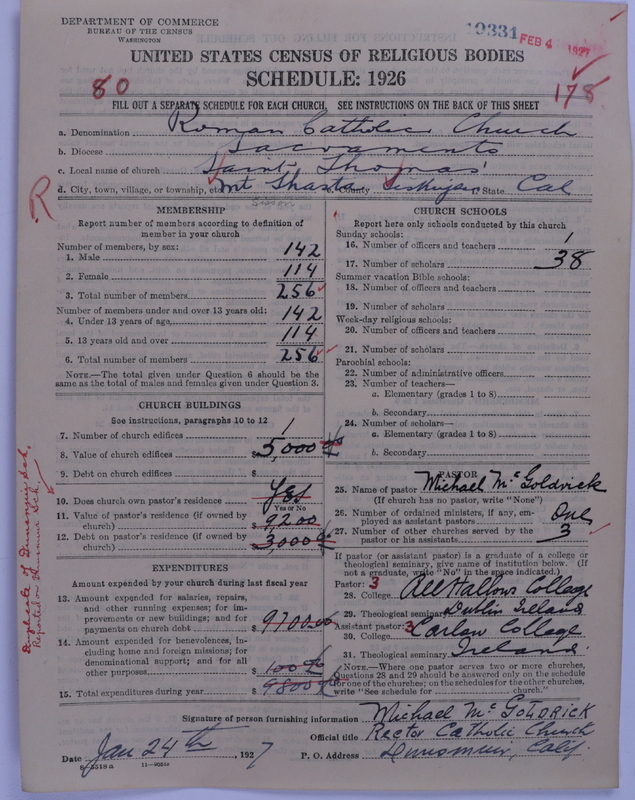 DEPARTMENT OF COMMERCE
BUREAU OF THE CENSUS
WASHINGTON
19331
FEB 4 1927
UNITED STATES CENSUS OF RELIGIOUS BODIES
SCHEDULE: 1926
80
178
FILL OUT A SEPARATE SCHEDULE FOR EACH CHURCH. SEE INSTRUCTIONS ON THE BACK OF THIS SHEET
a. Denomination Roman Catholic Church
b. Diocese Sacramento
c. Local name of church Saint Thomas'
d. City, town, village, or township, etc. Mt Shasta County Siskiyou State Cal
R
MEMBERSHIP
Report number of members according to definition of member in your church
Number of members, by sex:
1. Male 142
2. Female 114
3. Total number of members 256
Number of members under and over 13 years old:
4. Under 13 years of age, 142
5. 13 years old and over 114
6. Total number of members 256
NOTE.—The total given under Question 6 should be the
same as the total of males and females given under Question 3.
CHURCH BUILDINGS
See instructions, paragraphs 10 to 12
7. Number of church edifices 1
8. Value of church edifices $5,000
9. Debt on church edifices $
10. Does church own pastor's residence Yes
Yes or No
11. Value of pastor's residence (if owned by
church) $9200
12. Debt on pastor's residence (if owned by
church) $3,000
Duplicate of Dunsmuir Sch.
Reported on Dunsmuir Sch.
EXPENDITURES
Amount expended by your church during last fiscal year
13. Amount expended for salaries, repairs,
and other running expenses; for im-
provements or new buildings; and for
payments on church debt $9700.00
14. Amount expended for benevolences, in-
cluding home and foreign missions; for
denominational support; and for all
other purposes $100
15. Total expenditures during year $9800
CHURCH SCHOOLS
Report here only schools conducted by this church
Sunday schools:
16. Number of officers and teachers 1
17. Number of scholars 38
Summer vacation Bible schools:
18. Number of officers and teachers
19. Number of scholars
Week-day religious schools:
20. Number of officers and teachers
21. Number of scholars
Parochial schools:
22. Number of administrative officers
23. Number of teachers—
a. Elementary (grades 1 to 8)
b. Secondary
24. Number of scholars—
a. Elementary (grades 1 to 8)
b. Secondary
PASTOR
25. Name of pastor Michael McGoldrick
(If church has no pastor, write "None")
26. Number of ordained ministers, if any, em-
ployed as assistant pastors One
27. Number of other churches served by the
pastor or his assistants 3
If pastor (or assistant pastor) is a graduate of a college or
theological seminary, give name of institution below. (If
not a graduate, write "No" in the space indicated.)
Pastor: 3
28. College All Hallows College
29. Theological seminary Dublin Ireland
Assistant pastor: 3
30. College Carlow College
31. Theological seminary Ireland
NOTE.—Where one pastor serves two or more churches,
Questions 28 and 29 should be answered only on the schedule
for one of the churches; on the schedules for the other churches,
write "See schedule for church."
Signature of person furnishing information Michael McGOLDRICK
Official title Rector Catholic Church
Date Jan 24th, 1927 P. O. Address Dunsmuir, Calf.
8-5518a 11-9054a